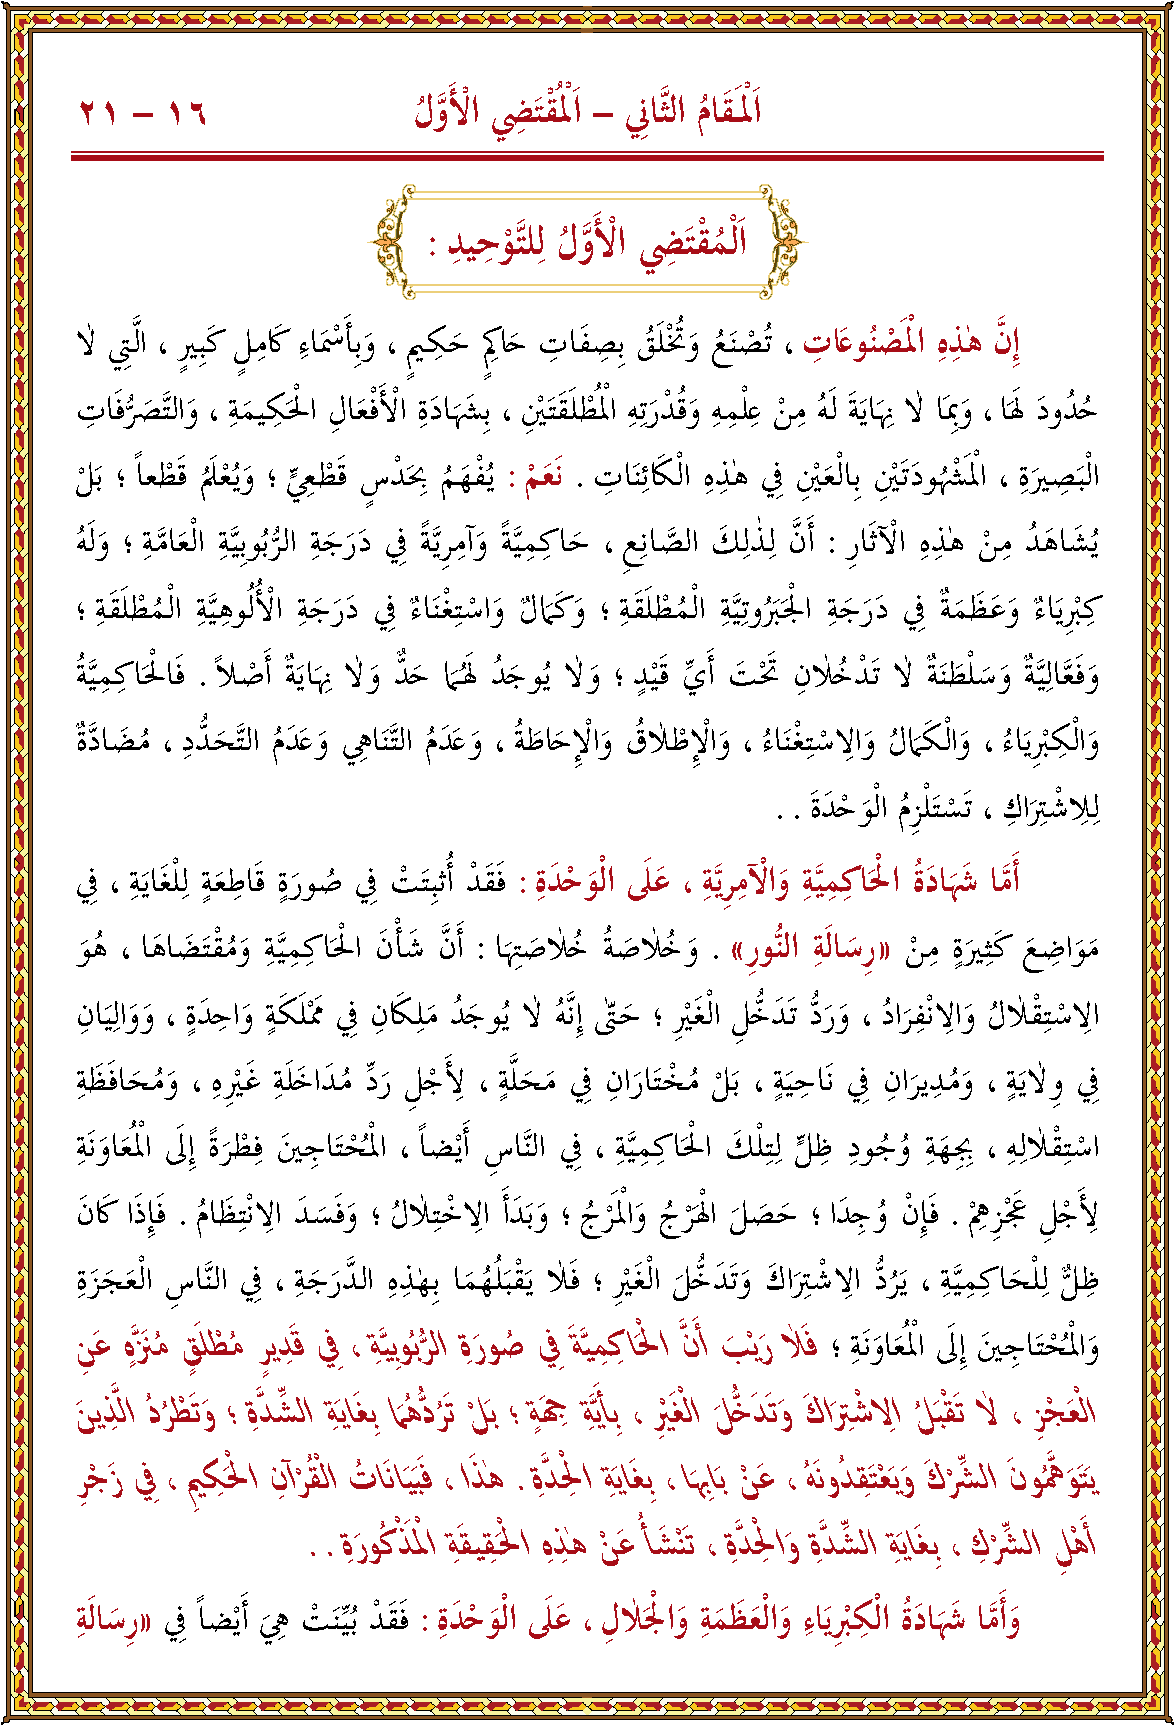 اَلْمَقَامُ الثَّانِي – اَلْمُقْتَضِي الْأَوَّلُ ١٦ – ٢١
اَلْمُقْتَضِي الْأَوَّلُ لِلتَّوْحِيدِ :
إِنَّ هٰذِهِ الْمَصْنُوعَاتِ ، تُصْنَعُ وَتُخْلَقُ بِصِفَاتِ حَاكِمٍ حَكِيمٍ ، وَبِأَسْمَاءِ كَامِلٍ كَبِيرٍ ، الَّتِي لَا
حُدُودَ لَهَا ، وَبِمَا لَا نِهَايَةَ لَهُ مِنْ عِلْمِهِ وَقُدْرَتِهِ الْمُطْلَقَتَيْنِ ، بِشَهَادَةِ الْأَفْعَالِ الْحَكِيمَةِ ، وَالتَّصَرُّفَاتِ
الْبَصِيرَةِ ، الْمَشْهُودَتَيْنِ بِالْعَيْنِ فِي هٰذِهِ الْكَائِنَاتِ . نَعَمْ : يُفْهَمُ بِحَدْسٍ قَطْعِيٍّ ؛ وَيُعْلَمُ قَطْعاً ؛ بَلْ
يُشَاهَدُ مِنْ هٰذِهِ الْآثَارِ : أَنَّ لِذٰلِكَ الصَّانِعِ ، حَاكِمِيَّةً وَآمِرِيَّةً فِي دَرَجَةِ الرُّبُوبِيَّةِ الْعَامَّةِ ؛ وَلَهُ
كِبْرِيَاءٌ وَعَظَمَةٌ فِي دَرَجَةِ الْجَبَرُوتِيَّةِ الْمُطْلَقَةِ ؛ وَكَمَالٌ وَاسْتِغْنَاءٌ فِي دَرَجَةِ الْأُلُوهِيَّةِ الْمُطْلَقَةِ ؛
وَفَعَّالِيَّةٌ وَسَلْطَنَةٌ لَا تَدْخُلَانِ تَحْتَ أَيِّ قَيْدٍ ؛ وَلَا يُوجَدُ لَهُمَا حَدٌّ وَلَا نِهَايَةٌ أَصْلاً . فَالْحَاكِمِيَّةُ
وَالْكِبْرِيَاءُ ، وَالْكَمَالُ وَالِاسْتِغْنَاءُ ، وَالْإِطْلَاقُ وَالْإِحَاطَةُ ، وَعَدَمُ التَّنَاهِي وَعَدَمُ التَّحَدُّدِ ، مُضَادَّةٌ
لِلِاشْتِرَاكِ ، تَسْتَلْزِمُ الْوَحْدَةَ . .
أَمَّا شَهَادَةُ الْحَاكِمِيَّةِ وَالْآمِرِيَّةِ ، عَلَى الْوَحْدَةِ : فَقَدْ أُثْبِتَتْ فِي صُورَةٍ قَاطِعَةٍ لِلْغَايَةِ ، فِي
مَوَاضِعَ كَثِيرَةٍ مِنْ «رِسَالَةِ النُّورِ» . وَخُلَاصَةُ خُلَاصَتِهَا : أَنَّ شَأْنَ الْحَاكِمِيَّةِ وَمُقْتَضَاهَا ، هُوَ
الِاسْتِقْلَالُ وَالِانْفِرَادُ ، وَرَدُّ تَدَخُّلِ الْغَيْرِ ؛ حَتَّى إِنَّهُ لَا يُوجَدُ مَلِكَانِ فِي مَمْلَكَةٍ وَاحِدَةٍ ، وَوَالِيَانِ
فِي وِلَايَةٍ ، وَمُدِيرَانِ فِي نَاحِيَةٍ ، بَلْ مُخْتَارَانِ فِي مَحَلَّةٍ ، لِأَجْلِ رَدِّ مُدَاخَلَةِ غَيْرِهِ ، وَمُحَافَظَةِ
اسْتِقْلَالِهِ ، بِجِهَةِ وُجُودِ ظِلٍّ لِتِلْكَ الْحَاكِمِيَّةِ ، فِي النَّاسِ أَيْضاً ، الْمُحْتَاجِينَ فِطْرَةً إِلَى الْمُعَاوَنَةِ
لِأَجْلِ عَجْزِهِمْ . فَإِنْ وُجِدَا ؛ حَصَلَ الْهَرْجُ وَالْمَرْجُ ؛ وَبَدَأَ الِاخْتِلَالُ ؛ وَفَسَدَ الِانْتِظَامُ . فَإِذَا كَانَ
ظِلٌّ لِلْحَاكِمِيَّةِ ، يَرُدُّ الِاشْتِرَاكَ وَتَدَخُّلَ الْغَيْرِ ؛ فَلَا يَقْبَلُهُمَا بِهٰذِهِ الدَّرَجَةِ ، فِي النَّاسِ الْعَجَزَةِ
وَالْمُحْتَاجِينَ إِلَى الْمُعَاوَنَةِ ؛ فَلَا رَيْبَ أَنَّ الْحَاكِمِيَّةَ فِي صُورَةِ الرُّبُوبِيَّةِ ، فِي قَدِيرٍ مُطْلَقٍ مُنَزَّهٍ عَنِ
الْعَجْزِ ، لَا تَقْبَلُ الِاشْتِرَاكَ وَتَدَخُّلَ الْغَيْرِ ، بِأَيَّةِ جِهَةٍ ؛ بَلْ تَرُدُّهُمَا بِغَايَةِ الشِّدَّةِ ؛ وَتَطْرُدُ الَّذِينَ
يَتَوَهَّمُونَ الشِّرْكَ وَيَعْتَقِدُونَهُ ، عَنْ بَابِهَا ، بِغَايَةِ الْحِدَّةِ . هٰذَا ، فَبَيَانَاتُ الْقُرْآنِ الْحَكِيمِ ، فِي زَجْرِ
أَهْلِ الشِّرْكِ ، بِغَايَةِ الشِّدَّةِ وَالْحِدَّةِ ، تَنْشَأُ عَنْ هٰذِهِ الْحَقِيقَةِ الْمَذْكُورَةِ . .
وَأَمَّا شَهَادَةُ الْكِبْرِيَاءِ وَالْعَظَمَةِ وَالْجَلَالِ ، عَلَى الْوَحْدَةِ : فَقَدْ بُيِّنَتْ هِيَ أَيْضاً فِي «رِسَالَةِ